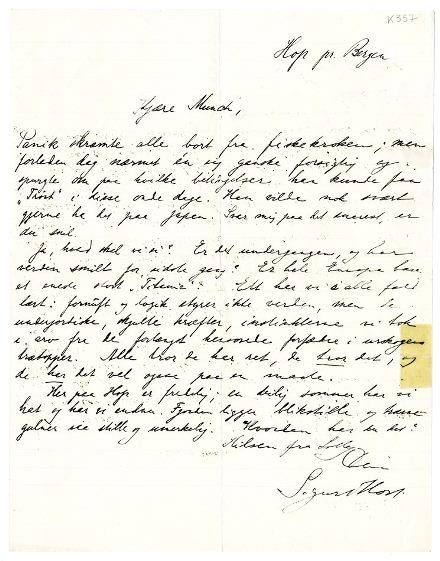 K 357
Hop pr. Bergen
Kjære Munch,
Panik skræmte alle bort fra fiskekroken; men
forleden dag nærmet én sig ganske forsigtig og
spurgte om paa hvilke betingelser han kunde faa
"Thist" i disse orde dage. Han vilde nok svært
gjerne ha det paa Japan. Svar mig paa det snarest, er
du snil.
Ja, hvad skal vi si? Er det undergangen, og har
verden smilt for sidste gang? Er hele Europa bare
et stort "Titanic"? Ett har vi i alle fald
lært: fornuft og logik styrer ikke verden, men de
underjordiske, skjulte kræfter, instinkterne vi tok
i arv fra de forlængst henvorne forfædre i urskogens
trætopper. Alle tror de har ret, de tror det, og
de har det vel ogsaa paa en maate.
Her paa Hop er fredelig; en deilig sommer har vi
hat og har vi endnu. Fjorden ligger blikstille og
stille og umerkelig. Hvordan har en det?
Hilsen fra
Din
Sigurd Høst.